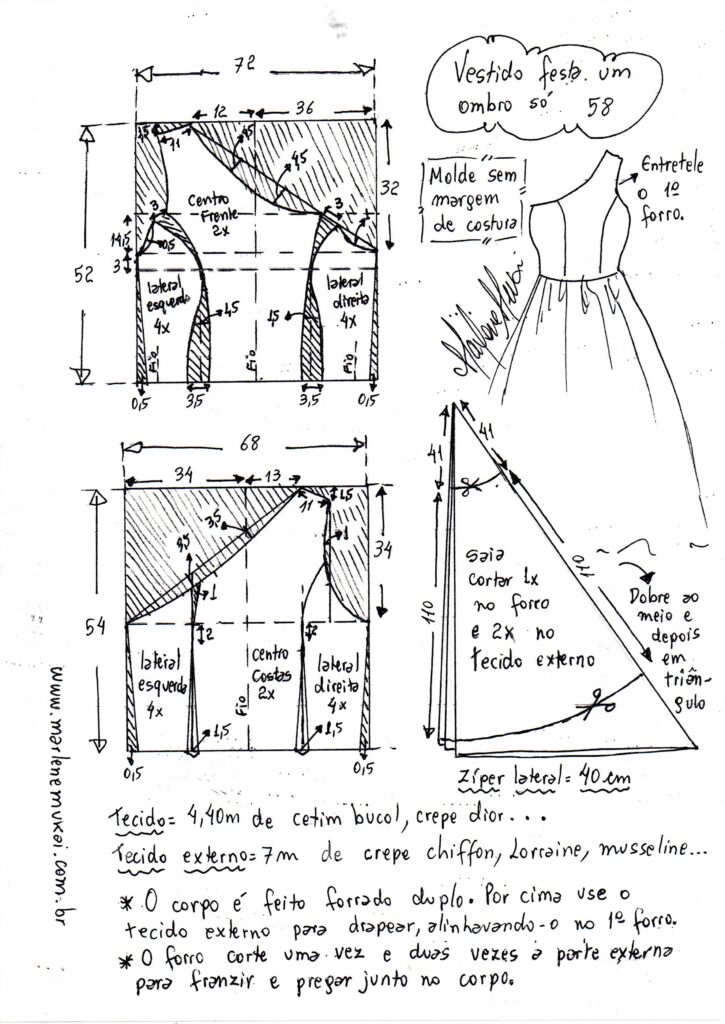 Vestido festa um
ombro só 58
Molde sem
margem
de costura
Entretele
o 1º
forro.
72
12
36
1,5
11
1,5
1,5
52
32
3
3
14,5
0,5
3
1
Centro
Frente
2x
lateral
esquerda
4x
lateral
direita
4x
1,5
1,5
Fio
Fio
Fio
0,5
3,5
3,5
0,5
68
34
13
3,5
11
1,5
1
1
54
34
2
2
lateral
esquerda
4x
Centro
Costas
2x
lateral
direita
4x
Fio
1,5
1,5
0,5
0,5
41
41
110
110
saia
cortar 1x
no forro
e 2x no
tecido externo
Dobre ao
meio e
depois
em
triân-
gulo
Zíper lateral = 40 cm
www.marlenemukai.com.br
Tecido = 4,40m de cetim bucol, crepe dior...
Tecido externo = 7m de crepe chiffon, Lorraine, musseline...
* O corpo é feito forrado duplo. Por cima use o
tecido externo para drapear, alinhavando-o no 1º forro.
* O forro corte uma vez e duas vezes a parte externa
para franzir e pregar junto no corpo.